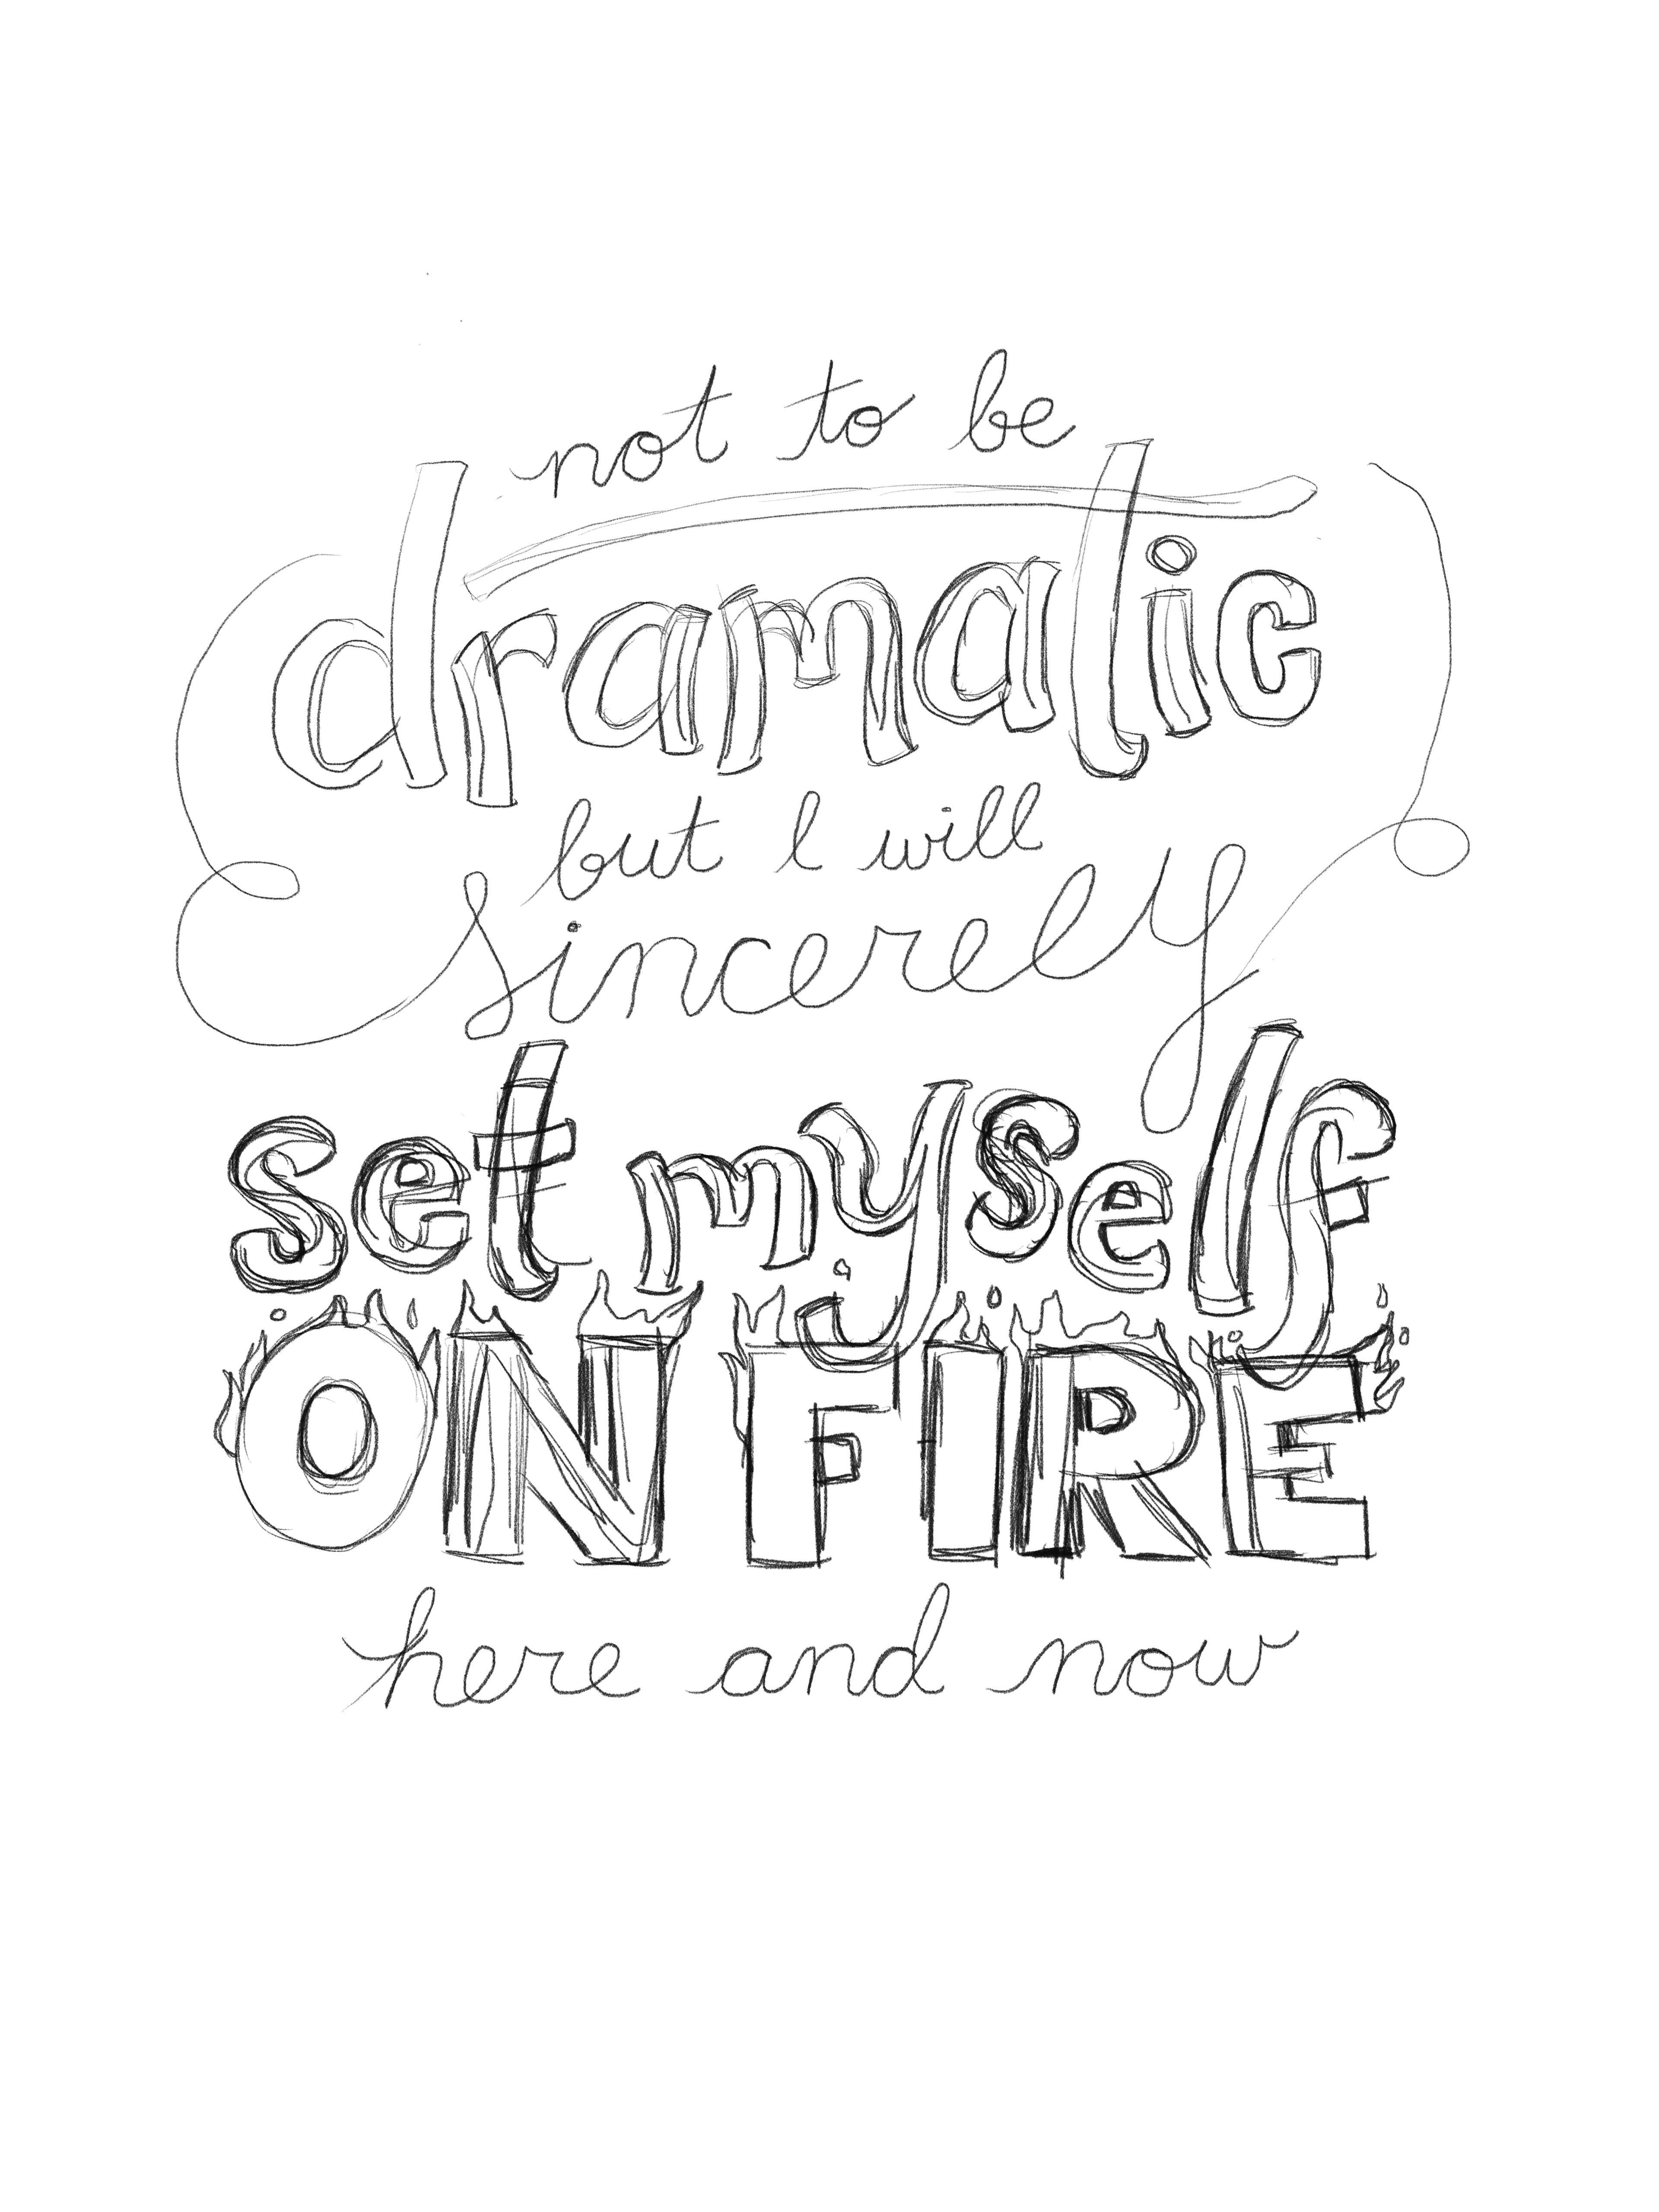 not to be
dramatic
but I will
sincerely
set myself
ON FIRE
here and now